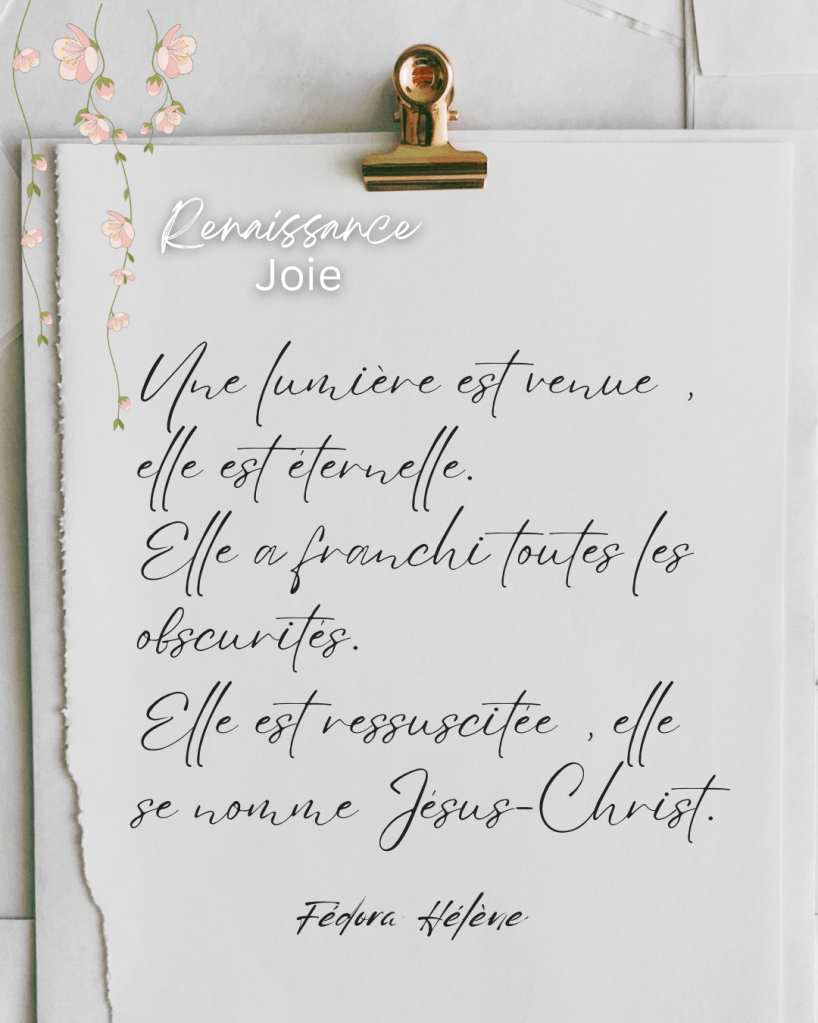 Renaissance
Joie
Une lumière est venue ,
elle est éternelle.
Elle a franchi toutes les
obscurités.
Elle est ressuscitée , elle
se nomme Jésus-Christ.
Fédora Hélène